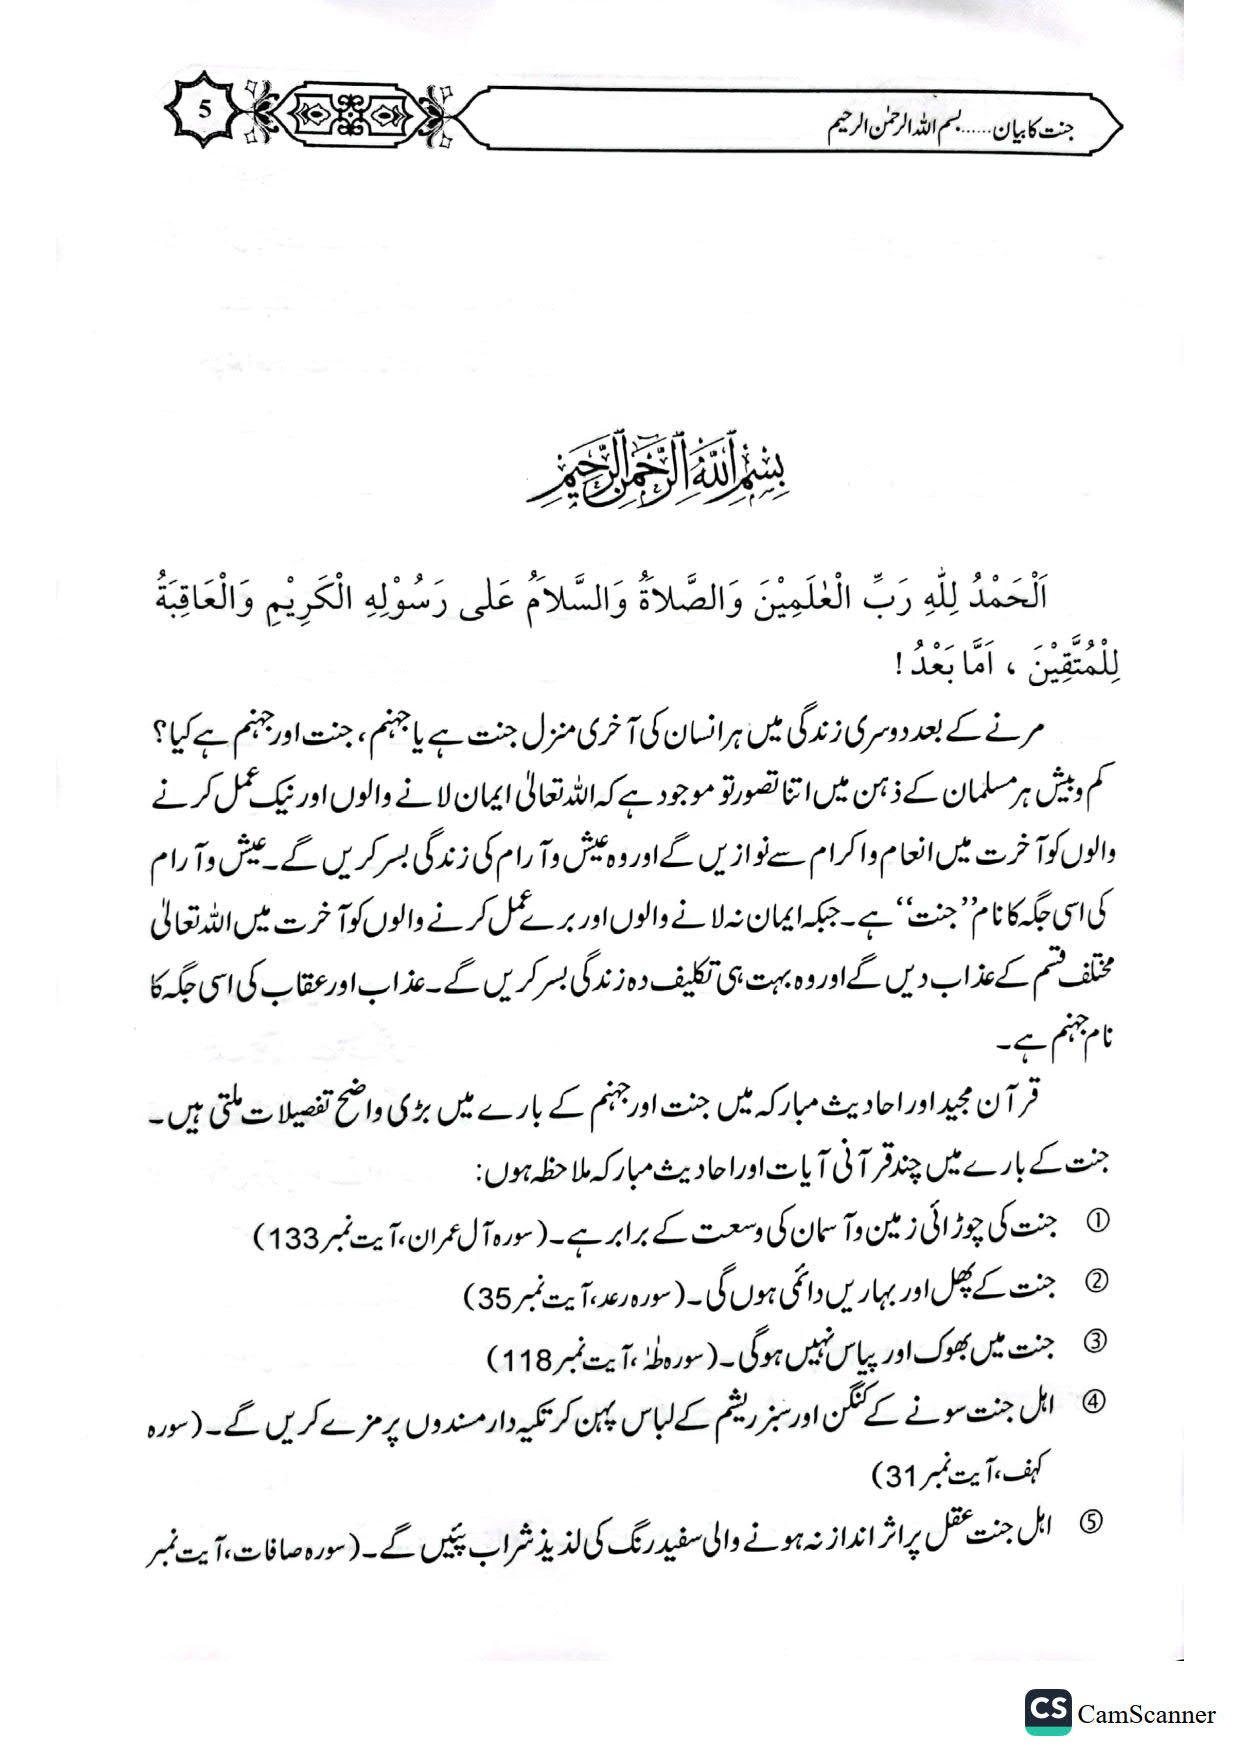 جنت کا بیان......بسم اللہ الرحمٰن الرحیم
5
بِسْمِ اللّٰهِ الرَّحْمٰنِ الرَّحِيْمِ
اَلْحَمْدُ لِلّٰهِ رَبِّ الْعٰلَمِيْنَ وَالصَّلاَةُ وَالسَّلاَمُ عَلٰى رَسُوْلِهِ الْكَرِيْمِ وَالْعَاقِبَةُ
لِلْمُتَّقِيْنَ ، اَمَّا بَعْدُ !
مرنے کے بعد دوسری زندگی میں ہر انسان کی آخری منزل جنت ہے یا جہنم، جنت اور جہنم ہے کیا؟
کم و بیش ہر مسلمان کے ذہن میں اتنا تصور تو موجود ہے کہ اللہ تعالیٰ ایمان لانے والوں اور نیک عمل کرنے
والوں کو آخرت میں انعام واکرام سے نوازیں گے اور وہ عیش وآرام کی زندگی بسر کریں گے۔ عیش وآرام
کی اسی جگہ کا نام ’’جنت‘‘ ہے۔ جبکہ ایمان نہ لانے والوں اور برے عمل کرنے والوں کو آخرت میں اللہ تعالیٰ
مختلف قسم کے عذاب دیں گے اور وہ بہت ہی تکلیف دہ زندگی بسر کریں گے۔ عذاب اور عقاب کی اسی جگہ کا
نام جہنم ہے۔
قرآن مجید اور احادیث مبارکہ میں جنت اور جہنم کے بارے میں بڑی واضح تفصیلات ملتی ہیں۔
جنت کے بارے میں چند قرآنی آیات اور احادیث مبارکہ ملاحظہ ہوں:
① جنت کی چوڑائی زمین وآسمان کی وسعت کے برابر ہے۔ (سورہ آل عمران، آیت نمبر 133)
② جنت کے پھل اور بہاریں دائمی ہوں گی۔ (سورہ رعد، آیت نمبر 35)
③ جنت میں بھوک اور پیاس نہیں ہوگی۔ (سورہ طٰہٰ ، آیت نمبر 118)
④ اہل جنت سونے کے کنگن اور سبز ریشم کے لباس پہن کر تکیہ دار مسندوں پر مزے کریں گے۔ (سورہ
کہف، آیت نمبر 31)
⑤ اہل جنت عقل پر اثر انداز نہ ہونے والی سفید رنگ کی لذیذ شراب پئیں گے۔ (سورہ صافات، آیت نمبر
CS CamScanner